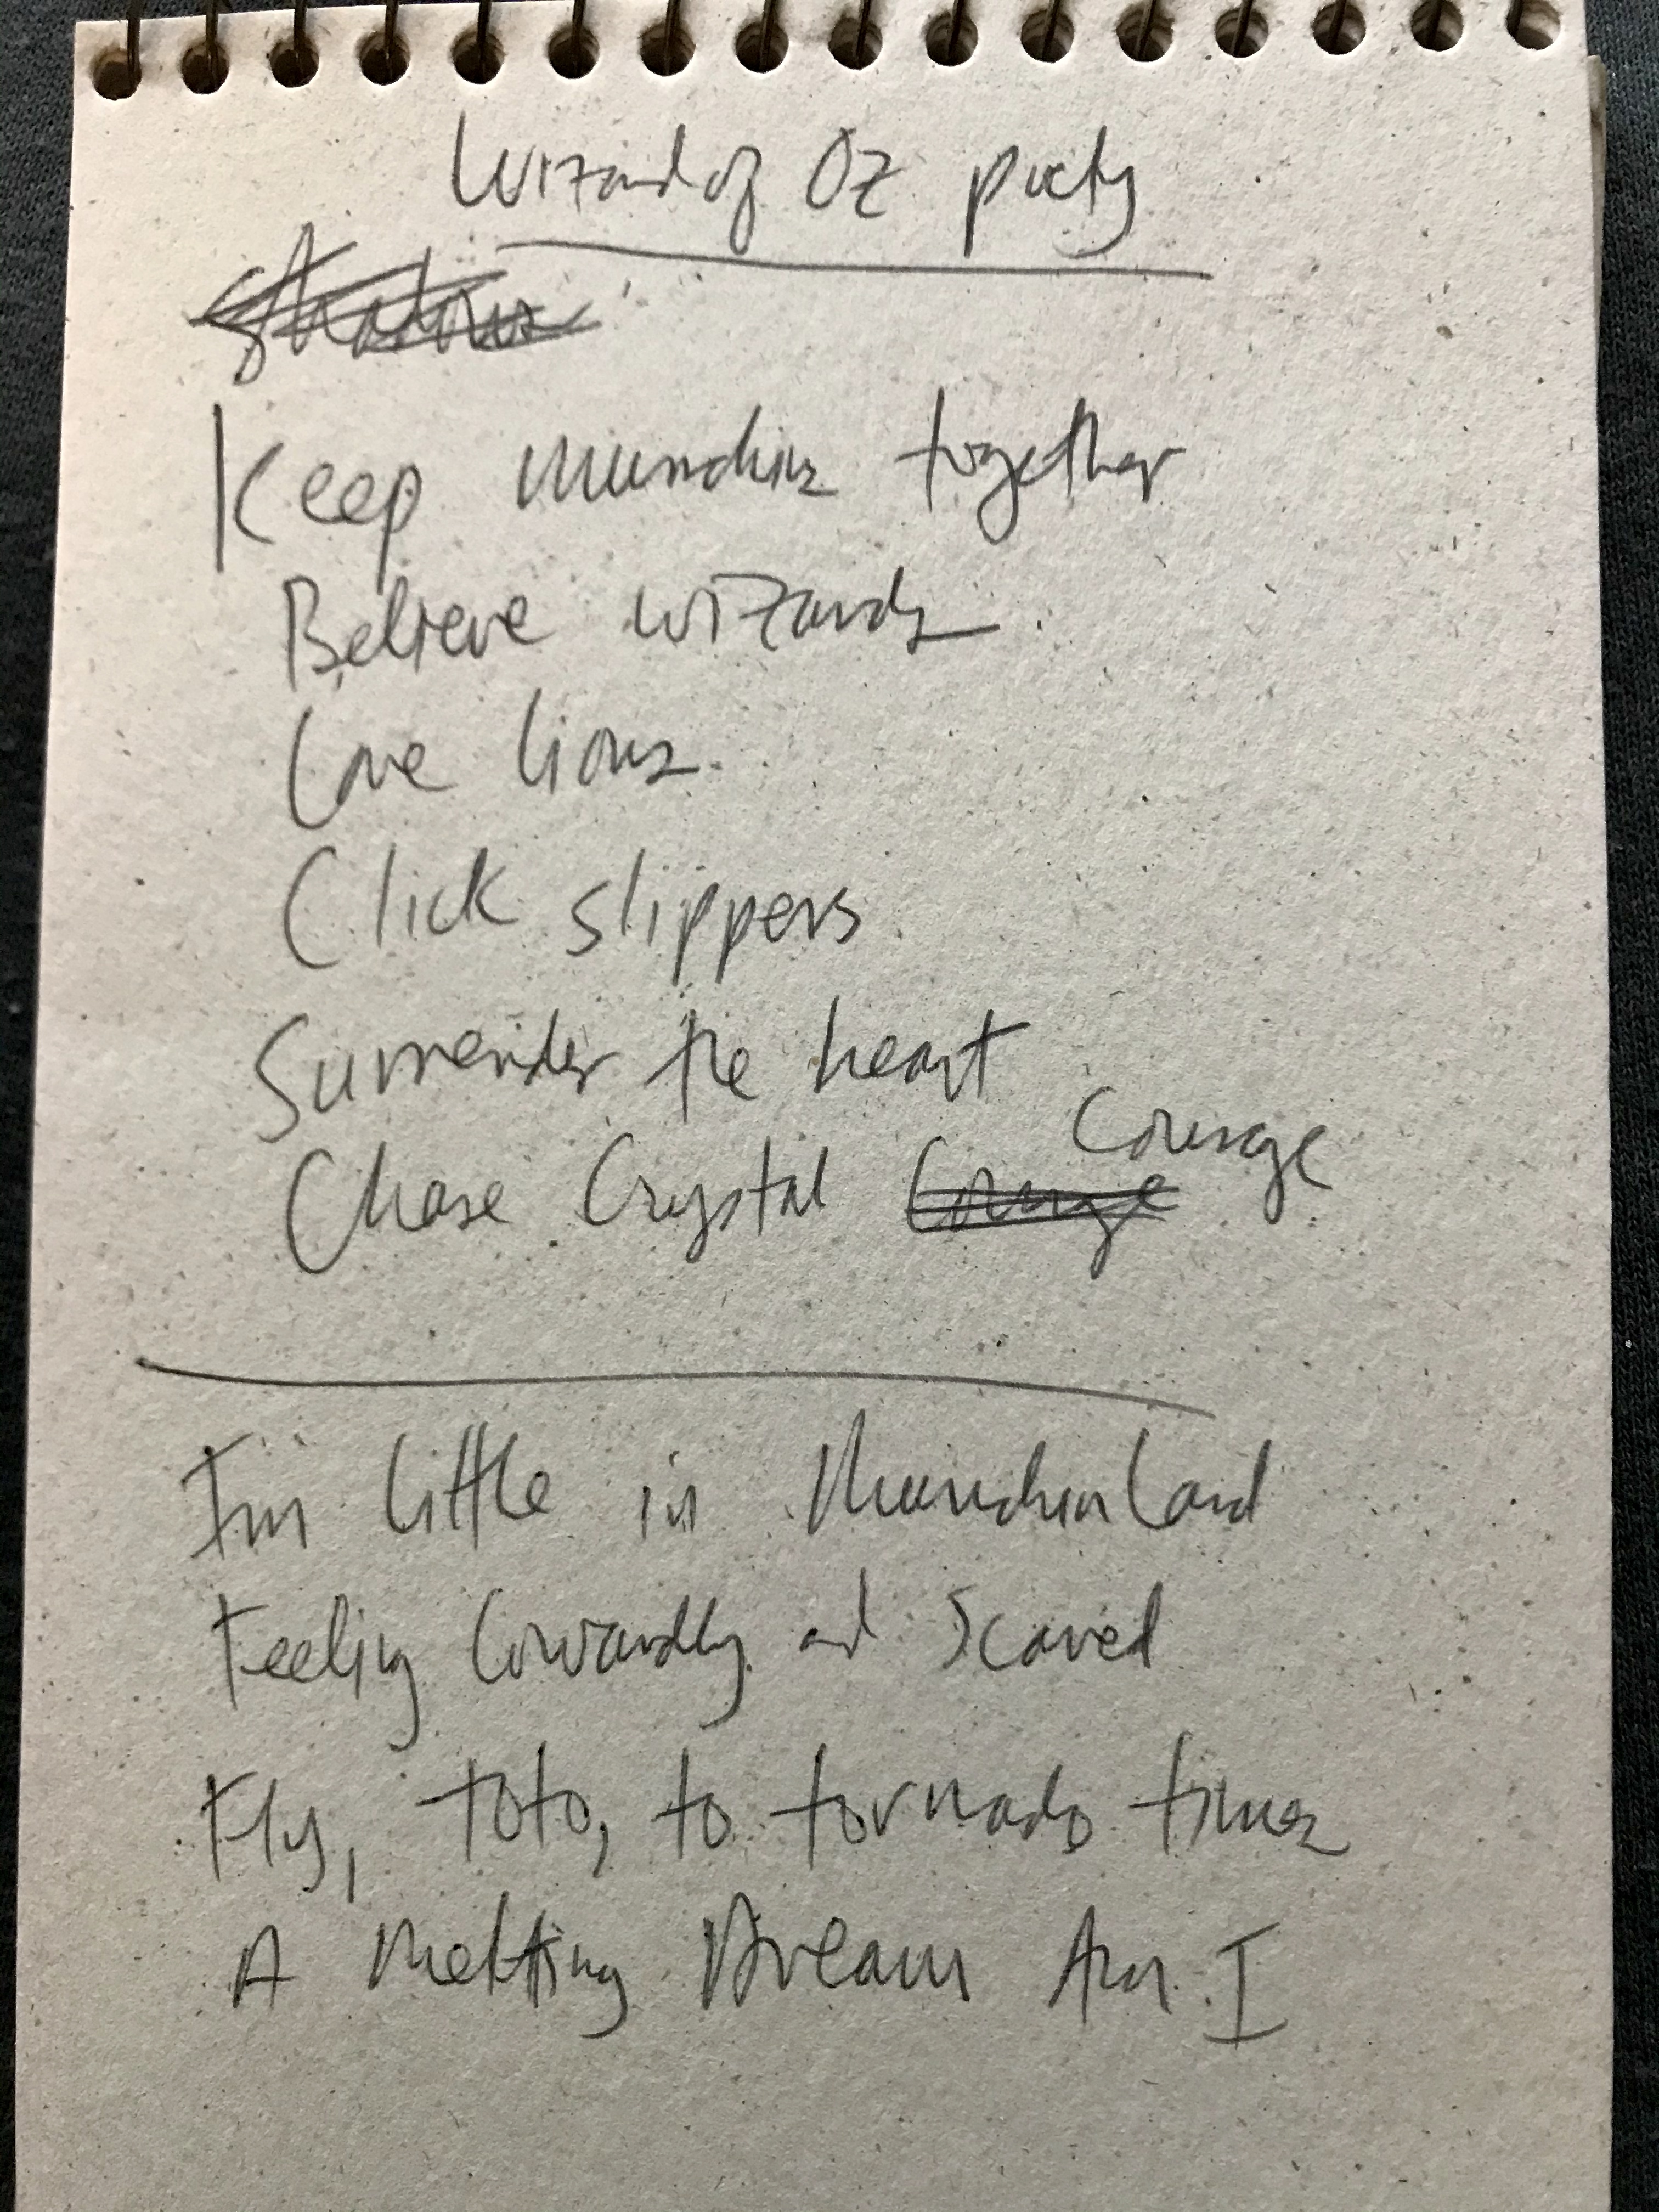 Wizard of Oz poetry
Keep together
Believe wizards
Love lions
Click slippers
Surrender the heart
Chase Crystal Courage Courage
I'm little in
Feeling Cowardly and Scared
Fly, Toto, to tornado times
A Melting Dream Am I